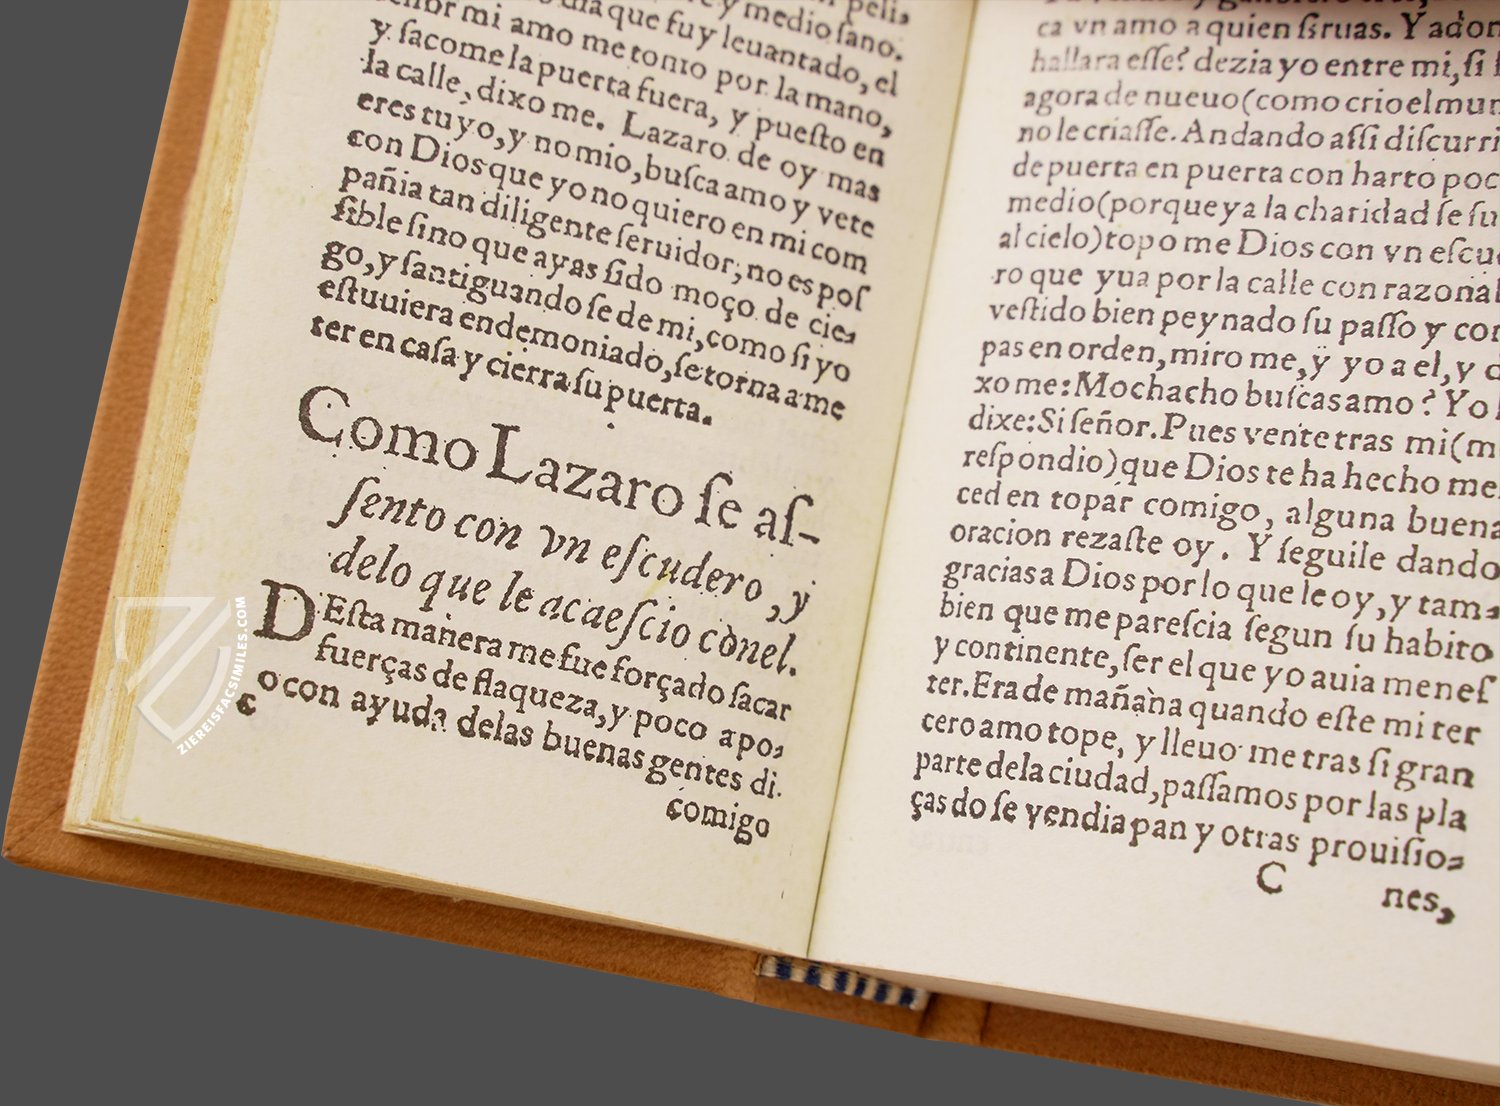 y medio ſano.
dia que fuy leuantado, el
ſeñor mi amo me tomo por la mano,
y ſacome la puerta fuera, y pueſto en
la calle, dixo me. Lazaro de oy mas
eres tuyo, y no mio, buſca amo y vete
con Dios que yo no quiero en mi com
pañia tan diligente ſeruidor, no es poſ
ſible ſino que ayas ſido moço de cie-
go, y ſantiguando ſe de mi, como ſi yo
eſtuuiera endemoniado, ſe torna a me
ter en caſa y cierra ſu puerta.
Como Lazaro ſe aſ-
ſento con vn eſcudero, y
delo que le acaeſcio cōnel.
DEſta manera me fue forçado ſacar
fuerças de flaqueza, y poco apo,
o con ayuda delas buenas gentes di.
c
comigo
ca vn amo a quien ſiruas. Y
hallara eſſe? dezia yo entre mi, ſi
agora de nueuo (como crio el mun
no le criaſſe. Andando aſſi diſcurri
de puerta en puerta con harto poc
medio (porque ya la charidad ſe ſu
al cielo) topo me Dios con vn eſcu
ro que yua por la calle con razona
veſtido bien peynado ſu paſſo y co
pas en orden, miro me, y yo a el, y
xo me: Mochacho buſcas amo? Yo
dixe: Si ſeñor. Pues vente tras mi (m
reſpondio) que Dios te ha hecho me
ced en topar comigo, alguna buena
oracion rezaſte oy. Y ſeguile dando
gracias a Dios por lo que le oy, y tam-
bien que me pareſcia ſegun ſu habito
y continente, ſer el que yo auia meneſ
ter. Era de mañana quando eſte mi ter
cero amo tope, y lleuo me tras ſi gran
parte dela ciudad, paſſamos por las pla
ças do ſe vendia pan y otras prouiſio-
C nes,
ZIEREISFACSIMILES.COM